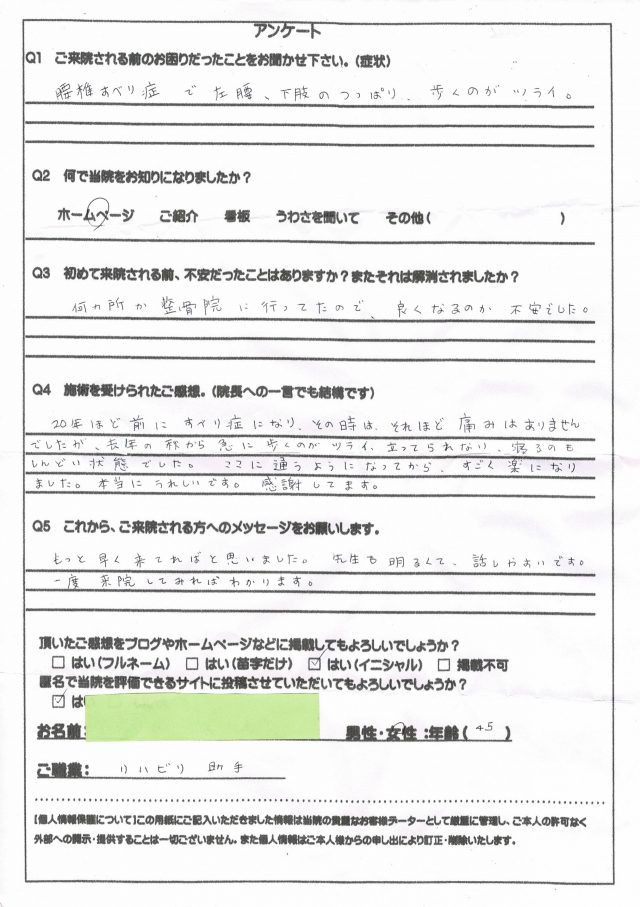 アンケート
Q1 ご来院される前のお困りだったことをお聞かせ下さい。(症状)
腰椎すべり症 で 左腰、下肢のつっぱり、 歩くのがツライ。
Q2 何で当院をお知りになりましたか?
ホームページ ご紹介 看板 うわさを聞いて その他( )
Q3 初めて来院される前、不安だったことはありますか?またそれは解消されましたか?
何カ所か 整骨院 に 行ってたので、 良くなるのか 不安でした。
Q4 施術を受けられたご感想。(院長への一言でも結構です)
20年ほど 前に すべり症になり、その時は、それほど 痛みは ありません
でしたが、去年の 秋から 急に 歩くのが ツライ、立ってられない、寝るのも
しんどい 状態 でした。 ここに 通う ようになってから、すごく 楽になり
ました。本当に うれしいです。 感謝してます。
Q5 これから、ご来院される方へのメッセージをお願いします。
もっと 早く 来てればと思いました。 先生も 明るくて、話しやすいです。
一度 来院してみれば わかります。
頂いたご感想をブログやホームページなどに掲載してもよろしいでしょうか?
□ はい(フルネーム) □ はい(苗字だけ) ☑ はい(イニシャル) □ 掲載不可
匿名で当院を評価できるサイトに投稿させていただいてもよろしいでしょうか?
☑ は
お名前: 男性・女性 :年齢( 45 )
ご職業: リハビリ 助手
【個人情報保護について】この用紙にご記入いただきました情報は当院の貴重なお客様データーとして厳重に管理し、ご本人の許可なく
外部への開示・提供することは一切ございません。また個人情報はご本人様からの申し出により訂正・削除いたします。